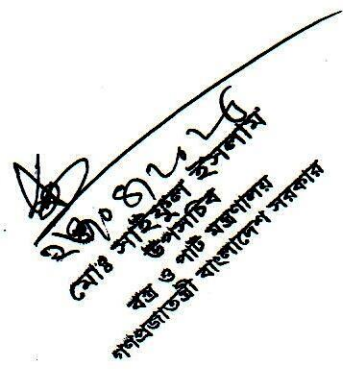 মোঃ সাইফুল ইসলাম
উপসচিব
বস্ত্র ও পাট মন্ত্রণালয়
গণপ্রজাতন্ত্রী বাংলাদেশ সরকার